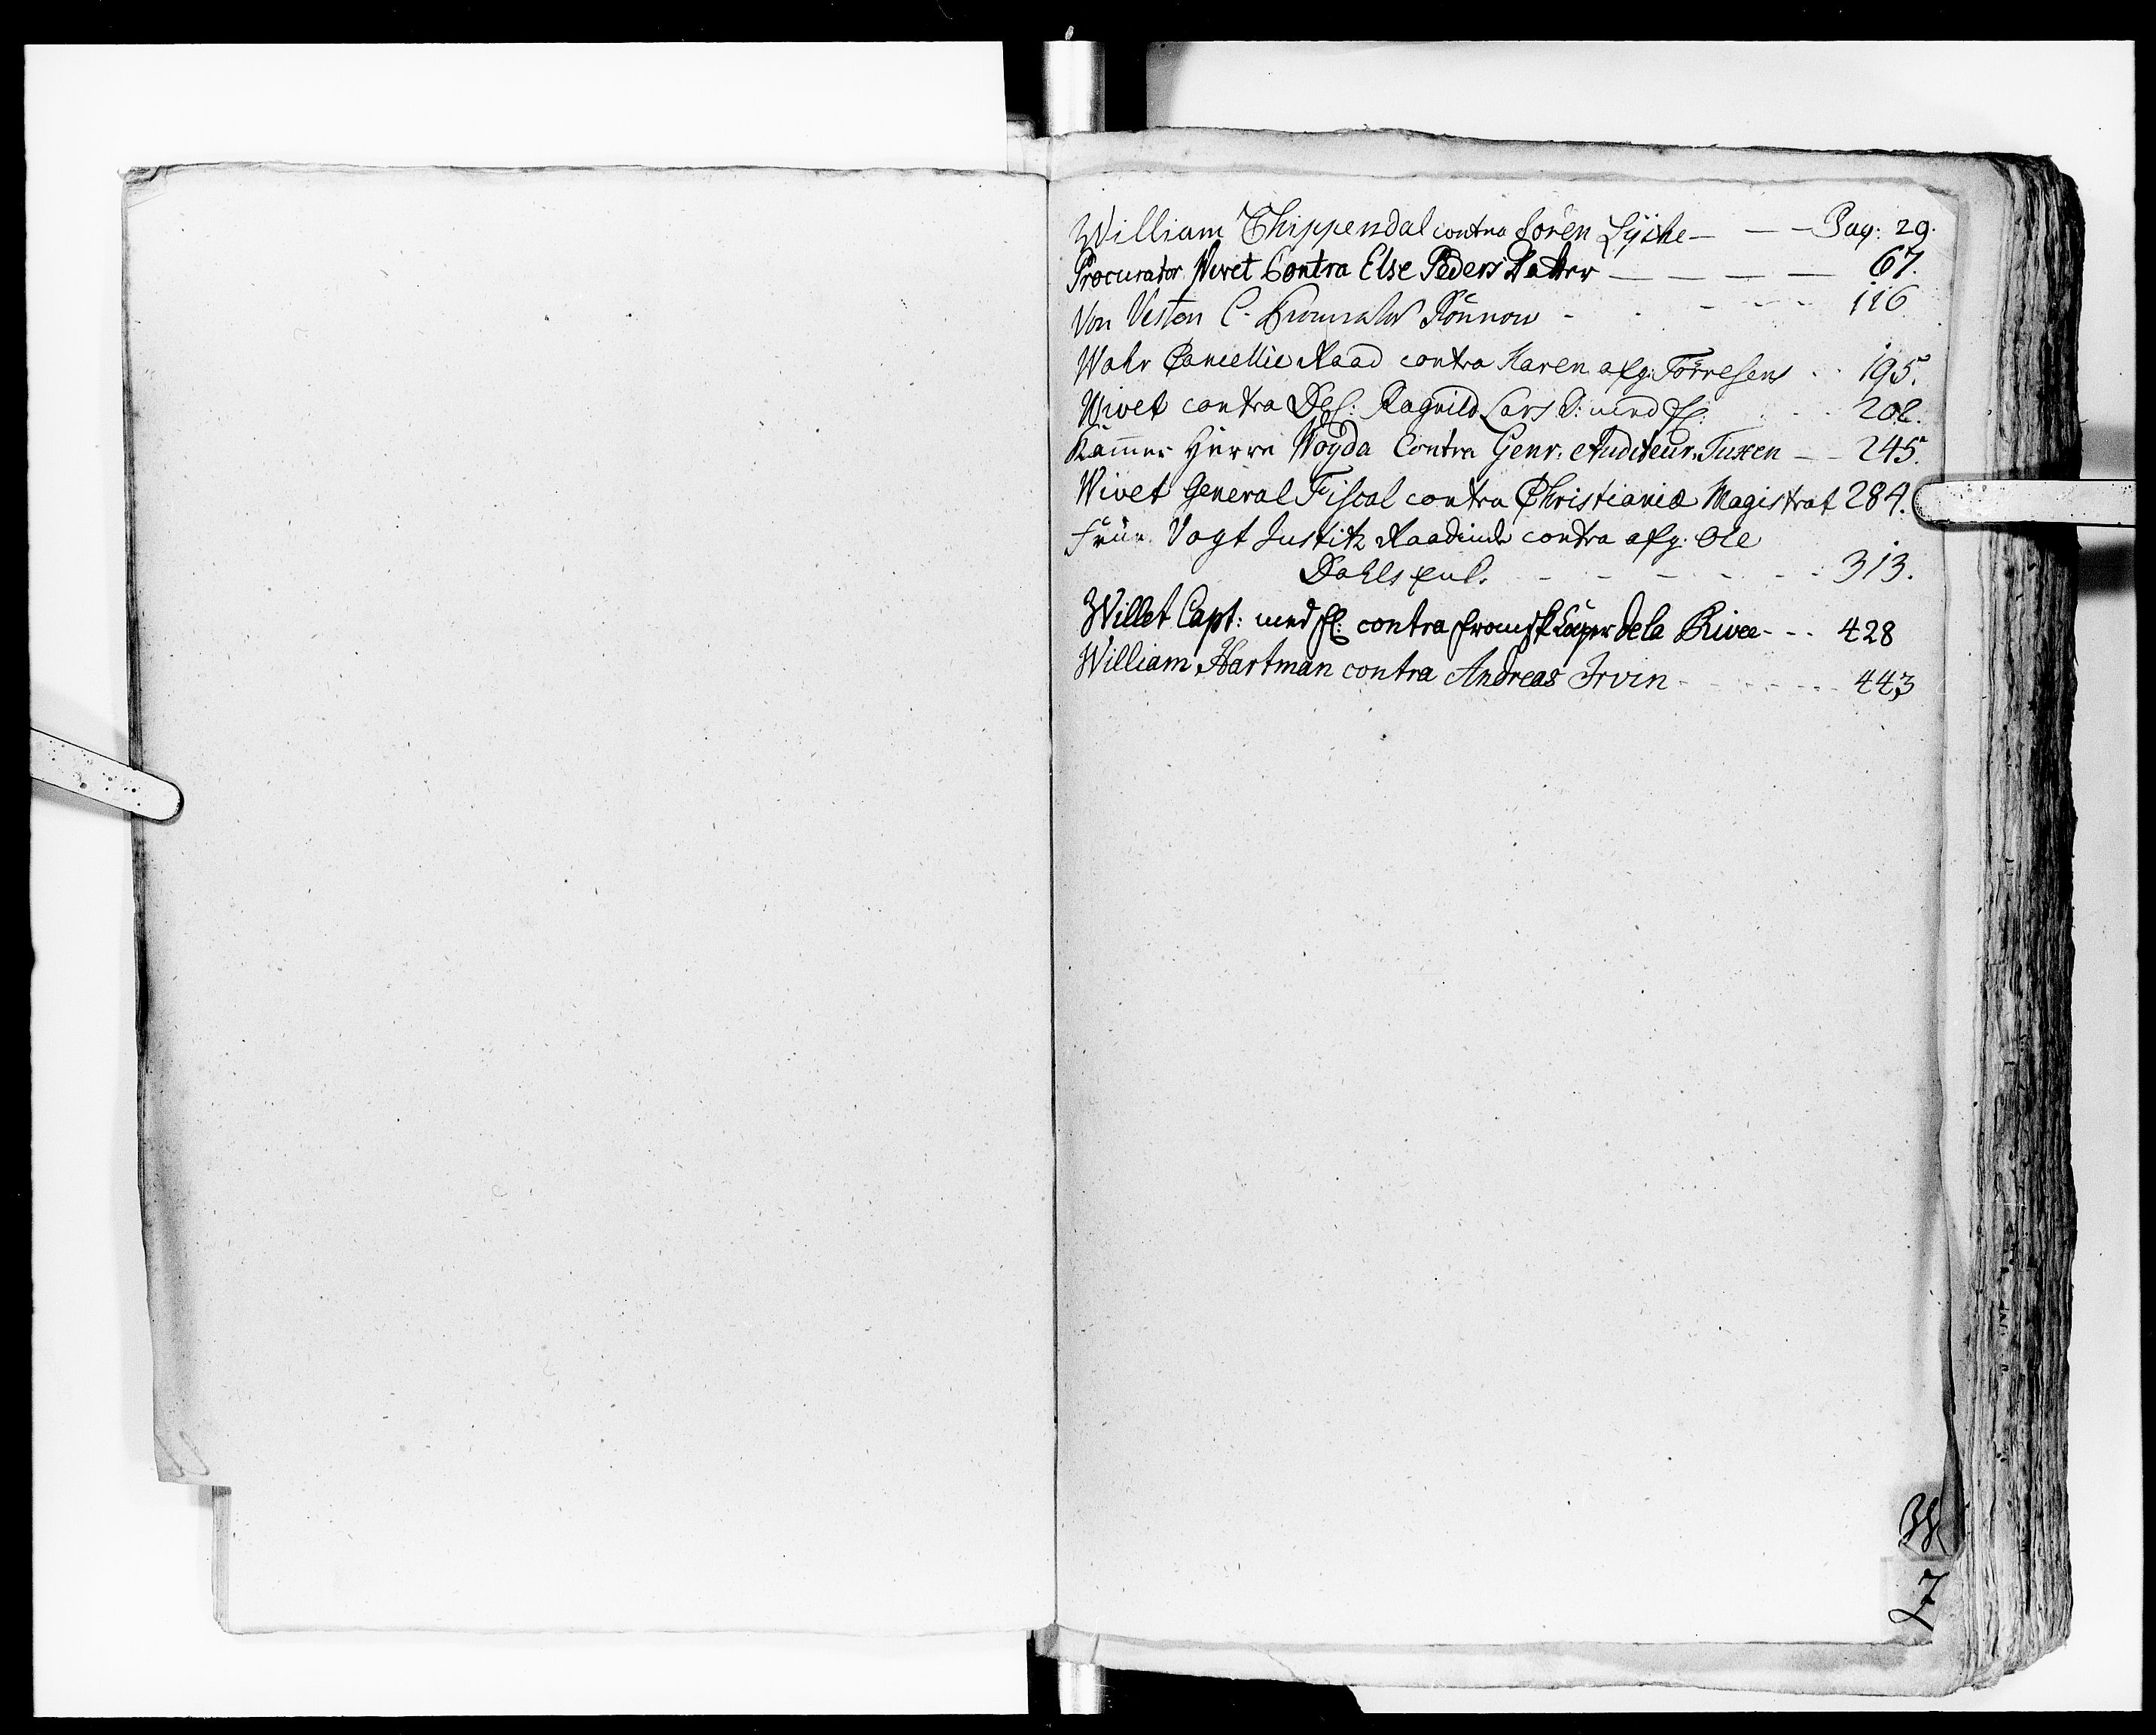 William Chippendal contra Sören Lÿche — — — Pag: 29.
Procurator Wivet Contra Else Peders Datter — — — — 67.
Von Westen C. Rönnow - - - - - 116
Wahr Cancellie Raad contra Karen afg: Törresens - - 195.
Wivet contra Ragnild Lars D: med fl: - - 202.
Kammer Herre Woyda Contra Genr. Auditeur. Tuxen — — 245.
Wivet General Fiscal contra Christianiæ Magistrat 284.
Frue Vogt Justitz Raadinde contra afg. Ole
Dahls - - - - - - 313.
Willet Capt: med fl: contra de la Rivee - - - 428
William Hartman contra Andreas Irvin - - - - - - 443
W
Z